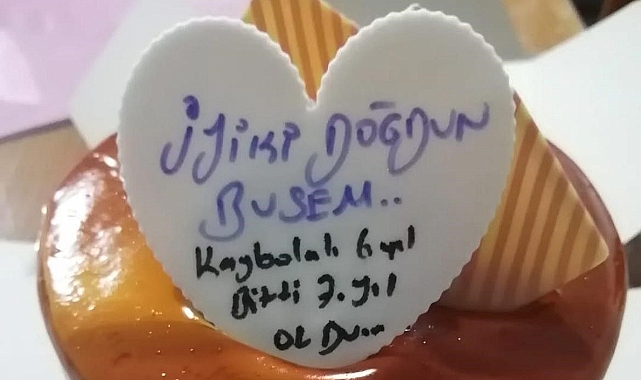 İYİKİ DOĞDUN
BUSEM..
Kaybolalı 6 yıl
Bitti 7. yıl
OLDU...